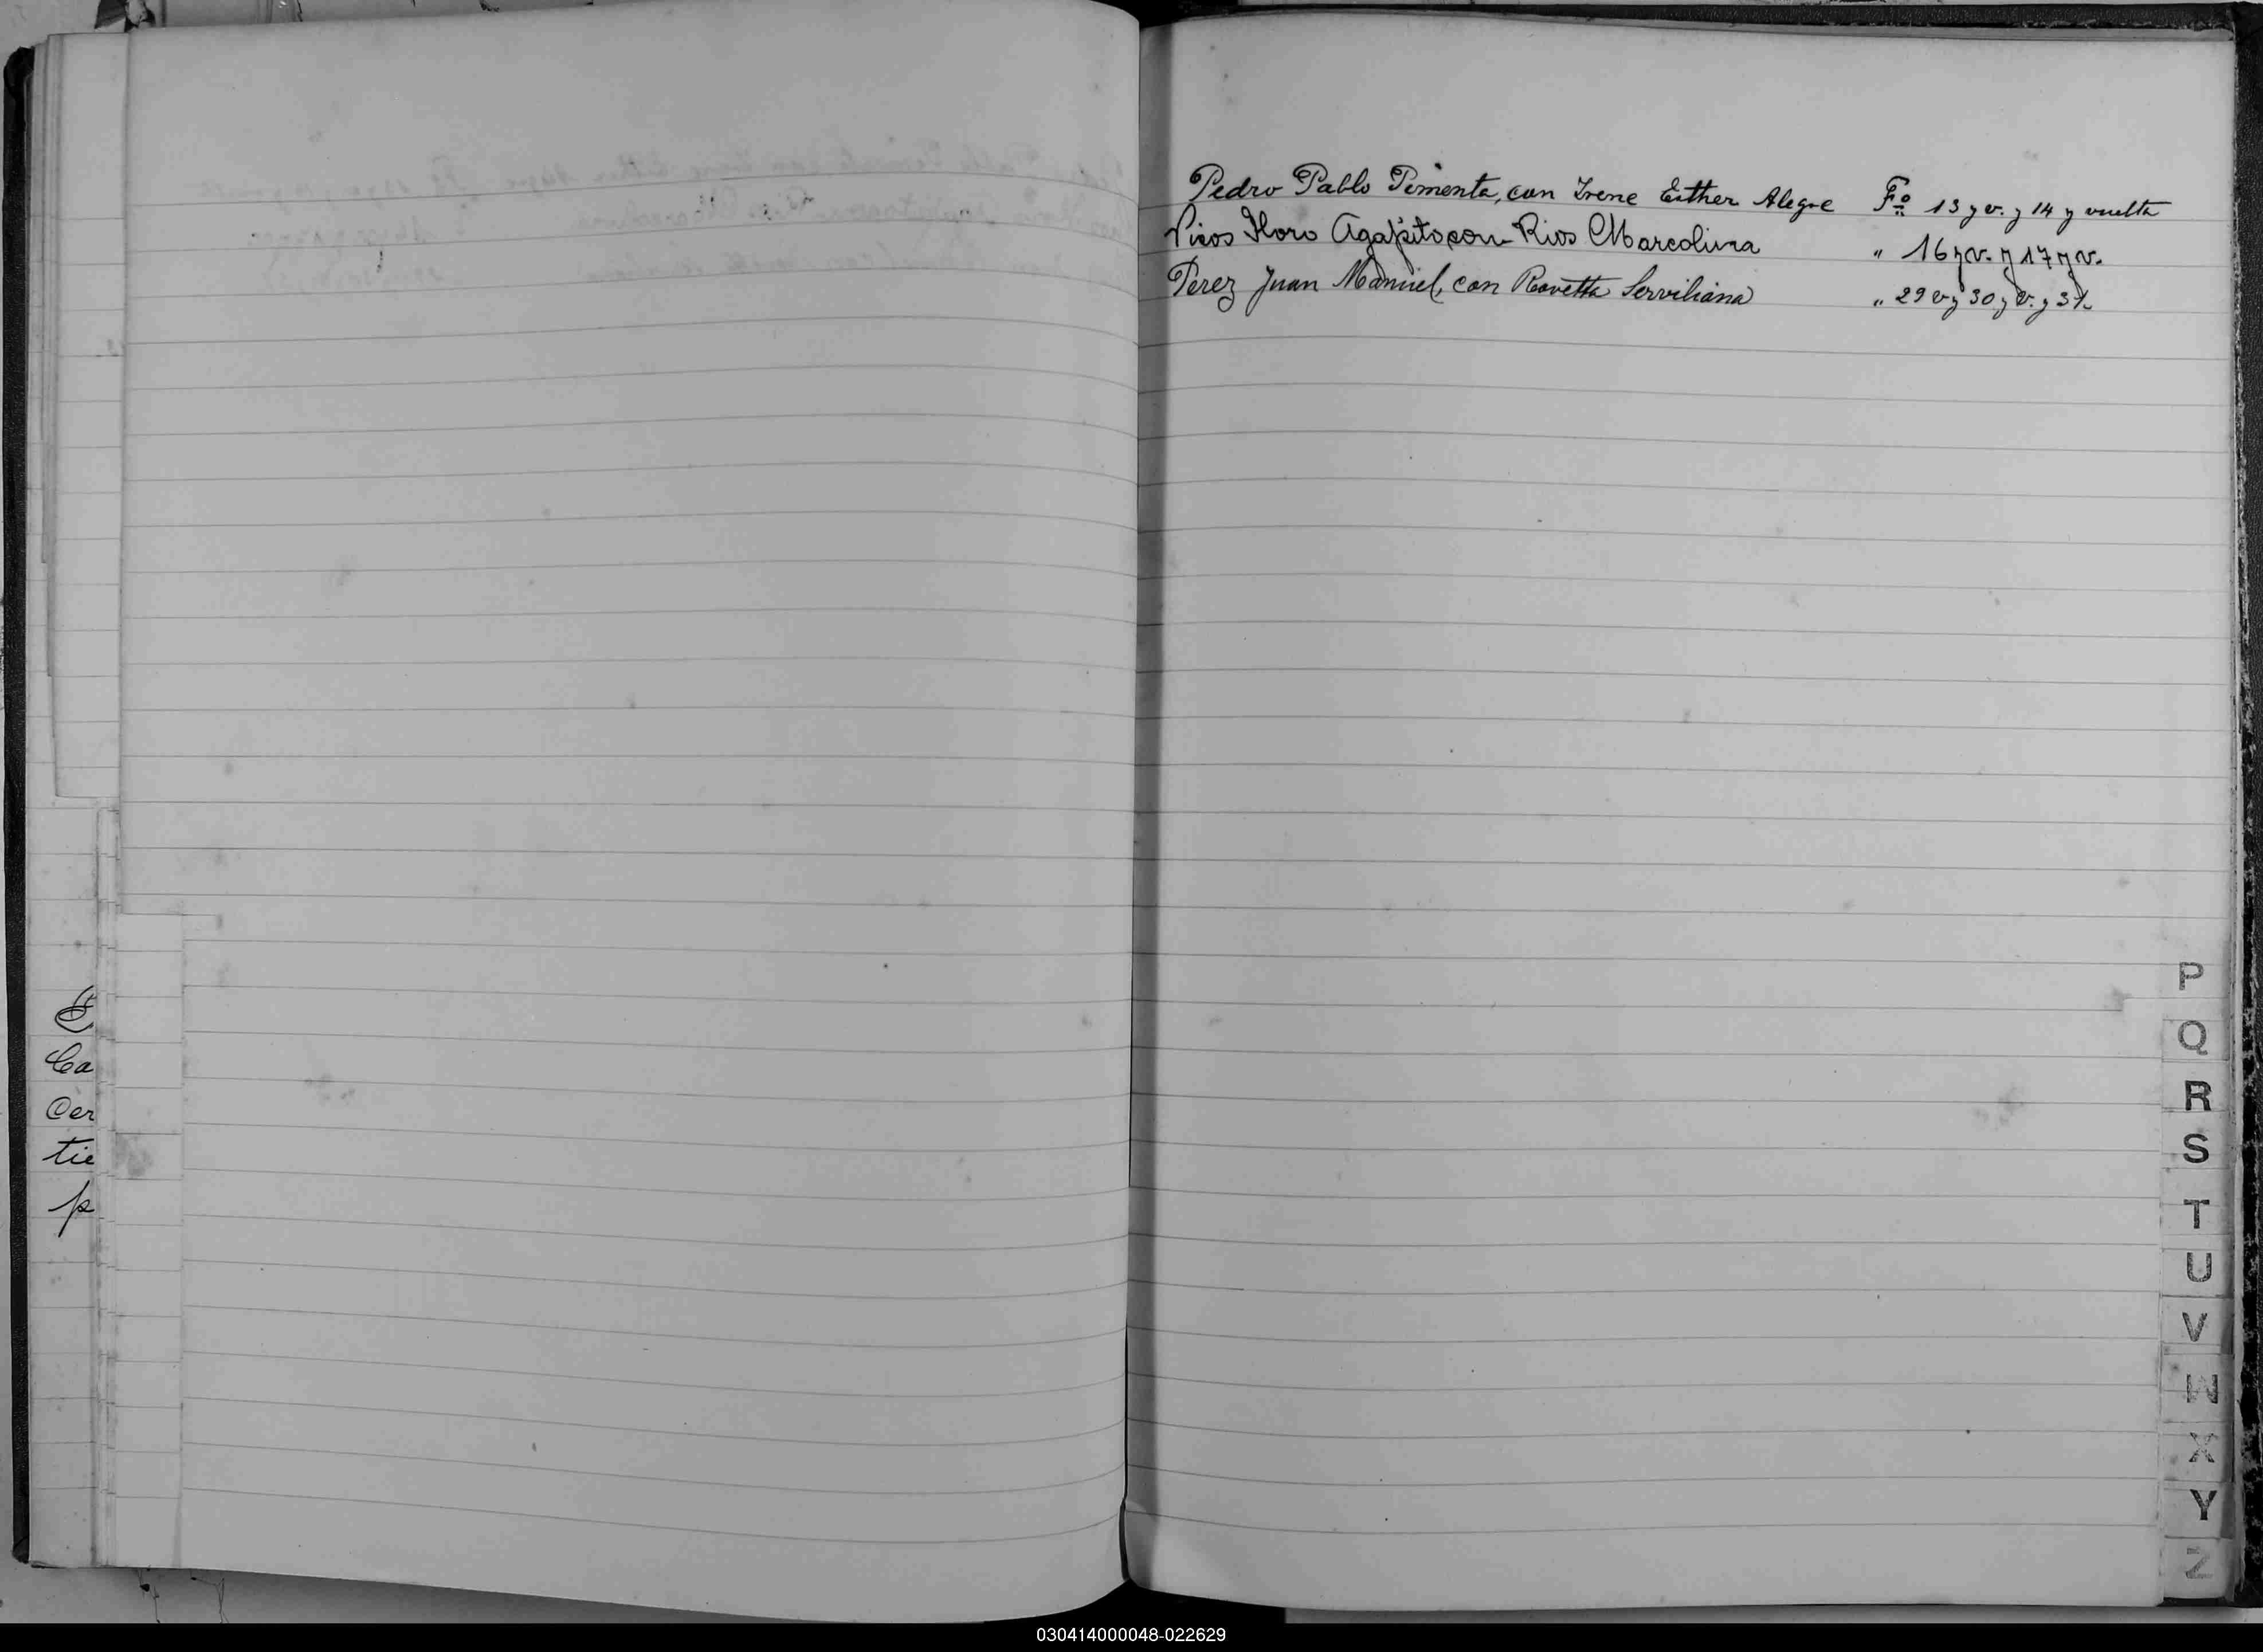 Ca
Cer
tie
p
Pedro Pablo Pimenta, con Irene Esther Alegre Fº 13 y v. y 14 y vuelta
Picos Floro Agapito con Rios Marcolina " 16 y v. y 17 y v.
Perez Juan Manuel, con Rovetta Serviliana " 29 v y 30 y v. y 31
P
Q
R
S
T
U
V
W
X
Y
Z
030414000048-022629